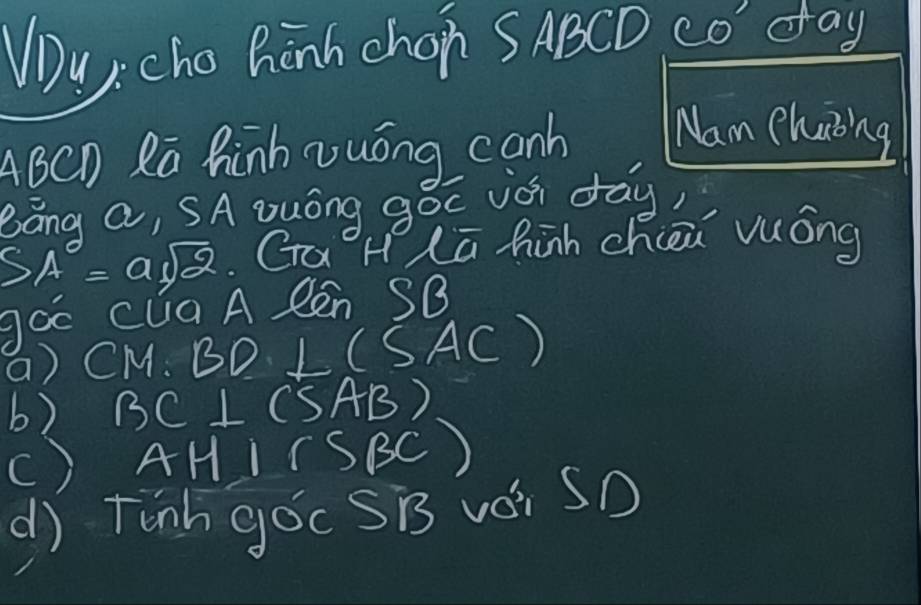 VDụ: cho hình chóp SABCD có đáy
Nam Phương
ABCD là hình vuông cạnh
bằng a, SA vuông góc với đáy,
SA = a√2. Gọi H là hình chiếu vuông
góc của A lên SB
a) CM: BD ⊥ (SAC)
b) BC ⊥ (SAB)
c) AH ⊥ (SBC)
d) Tính góc SB với SD